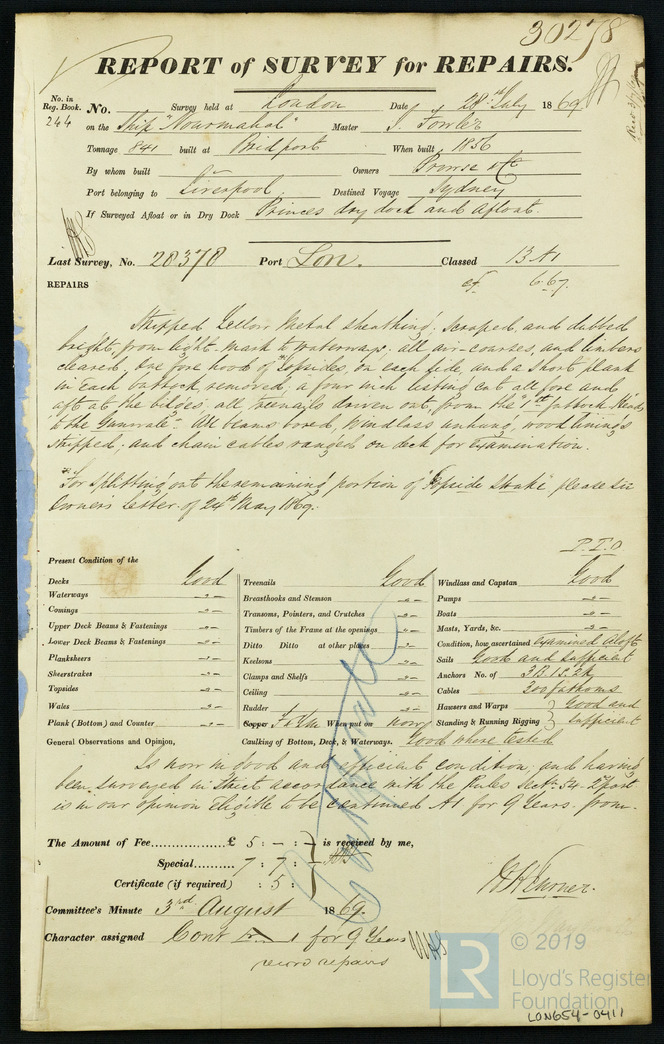 30278
REPORT of SURVEY for REPAIRS.
No. in Reg. Book.
244
No. Survey held at London Date 28th July 1869
Recd 3/8/69
on the Ship "Nourmahal" Master J. Fowler
Tonnage 841 built at Bridport When built 1856
By whom built Owners Prowse & Co
Port belonging to Liverpool Destined Voyage Sydney
If Surveyed Afloat or in Dry Dock Princes dry dock and afloat.
Last Survey, No. 28378 Port Lon. Classed 13 A1
REPAIRS cf 6.67.
Stripped Yellow Metal sheathing, scraped, and dubbed
bright, from light-mark to waterways; all air-courses, and limbers
cleared. One fore hood of Topsides, on each side, and a short plank
in each buttock, removed; a four inch listing cut all fore and
aft at the bilges, all treenails driven out, from the futtock Heads
to the Gunwale. All beams bored, Windlass unhung, wood linings
stripped, and chain cables ranged on deck for examination.
* For splitting out the remaining portion of "Topside Strake" please see
Owners Letter of 24th May 1869.
P.T.O
Present Condition of the
Decks Good
Waterways "
Comings "
Upper Deck Beams & Fastenings "
Lower Deck Beams & Fastenings "
Planksheers "
Sheerstrakes "
Topsides "
Wales "
Plank (Bottom) and Counter "
Treenails Good
Breasthooks and Stemson "
Transoms, Pointers, and Crutches "
Timbers of the Frame at the openings "
Ditto Ditto at other places "
Keelsons "
Clamps and Shelfs "
Ceiling "
Rudder "
Copper F & YM When put on now
Windlass and Capstan Good
Pumps "
Boats "
Masts, Yards, &c. "
Condition, how ascertained Examined Aloft
Sails Good and sufficient
Anchors No. of 3B. 1S. 2K
Cables 300 fathoms
Hausers and Warps } Good and
Standing & Running Rigging } Sufficient
General Observations and Opinion, Caulking of Bottom, Deck, & Waterways. Good where tested
Is now in good and efficient condition; and having
been surveyed in Strict accordance with the Rules Sect. 54. 2 part
is in our opinion Eligible to be continued A1 for 9 Years. from.
Certificate
The Amount of Fee............... £ 5 : - : - } is received by me,
Special.......... 7 : 7 : -
Certificate (if required) : 5 :
Committee's Minute 3rd August 1869.
Character assigned Cont 1 for 9 Years
record repairs
© 2019
LR
Lloyd's Register
Foundation
LON654-0411